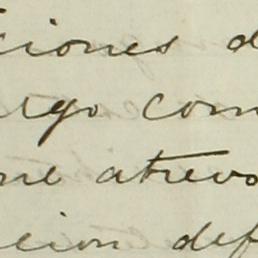 ciones d
rgo com
me atrevo
cion def